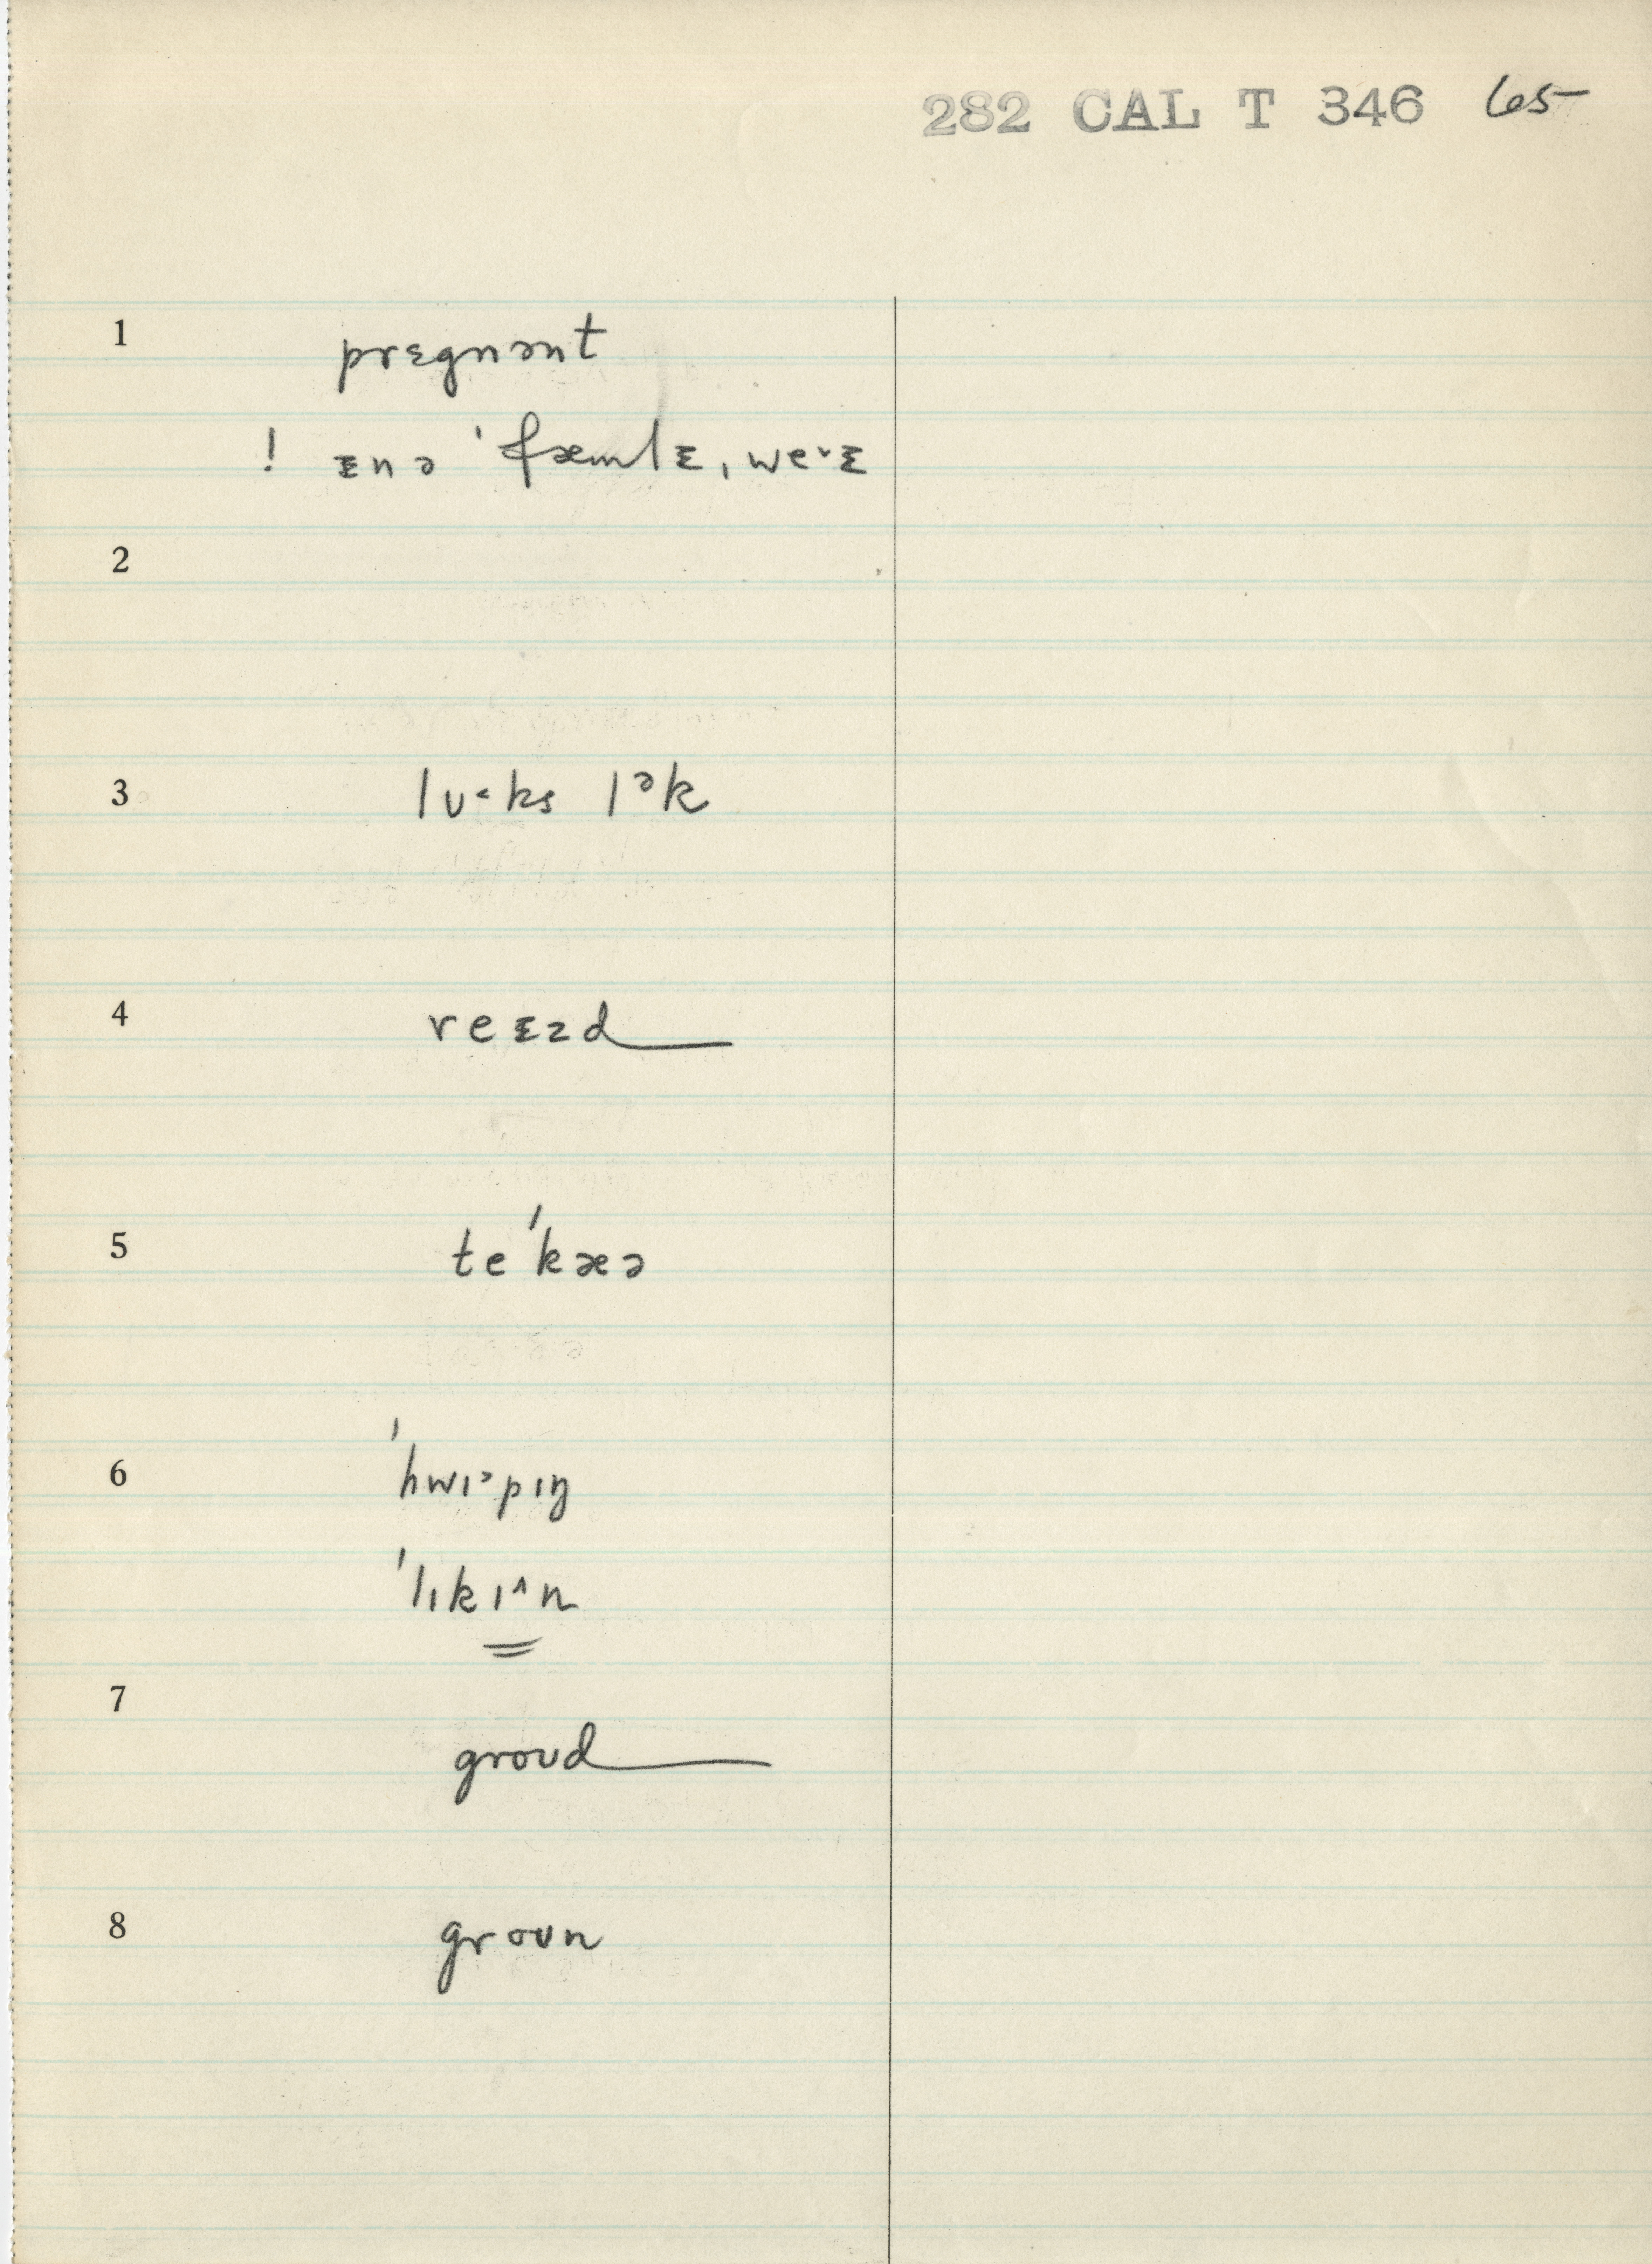 282 CAL T 346 65
1 prɛgnənt
! ɪn ə ˈfæmlɪ ˌweˑɪ
2
3 lʊ˂ks lᵊk
4 reɪzd
5 te ˈkæə
6 ˈhwɪ˃pɪŋ
ˈlɪkɪ^n
7 groʊd
8 groʊn